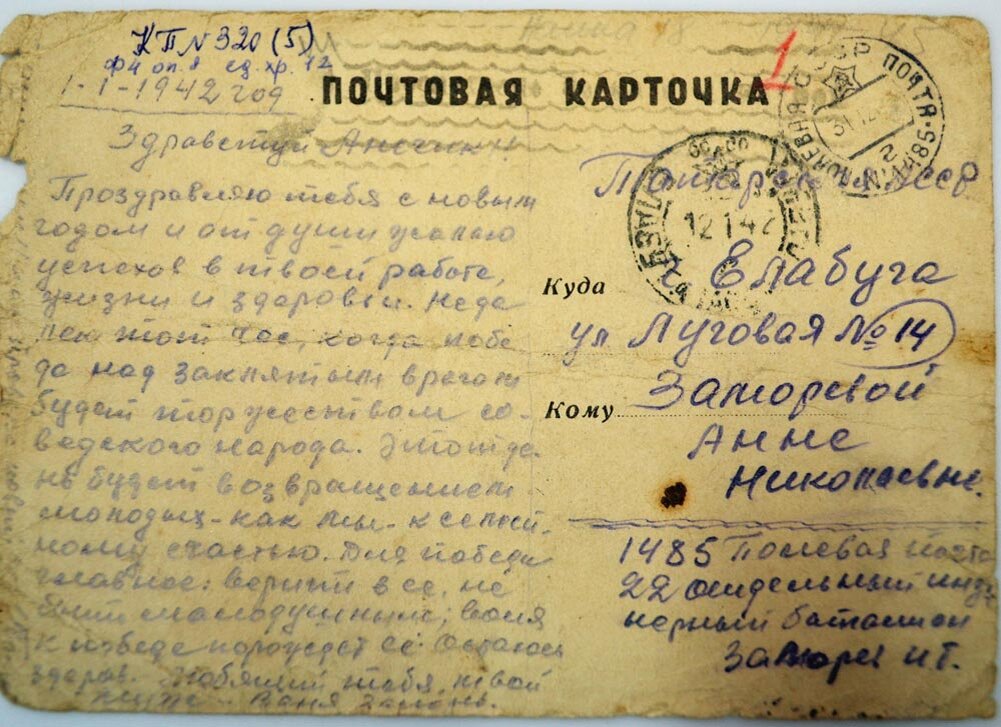 КП № 320 (5)
ф 4 оп. 1 ед. хр. 12
1-1-1942 год
ПОЧТОВАЯ КАРТОЧКА
1
Здравствуй Анчик!!
Проздравляю тебя с новым
годом и от души желаю
успехов в твоей работе,
жизни и здоровьи. Неда
лек тот час, когда побе
да над заклятым врагом
будет торжеством со-
ветского народа.
но будет возвращением
молодых - как мы - к семей-
ному счастью. Для победы
главное: верить в ее, не
быть малодушным; воля
к победе порождает ее. Остаюсь
здоров. Любящий тебя, твой
Ваня
СССР ПОЧТА
12 1 42
Куда
г. Елабуга
ул Луговая № 14
Кому
Заморевой
Анне
Николаевне.
1485 Полевая почта
22 отдельный инже
нерный батальон